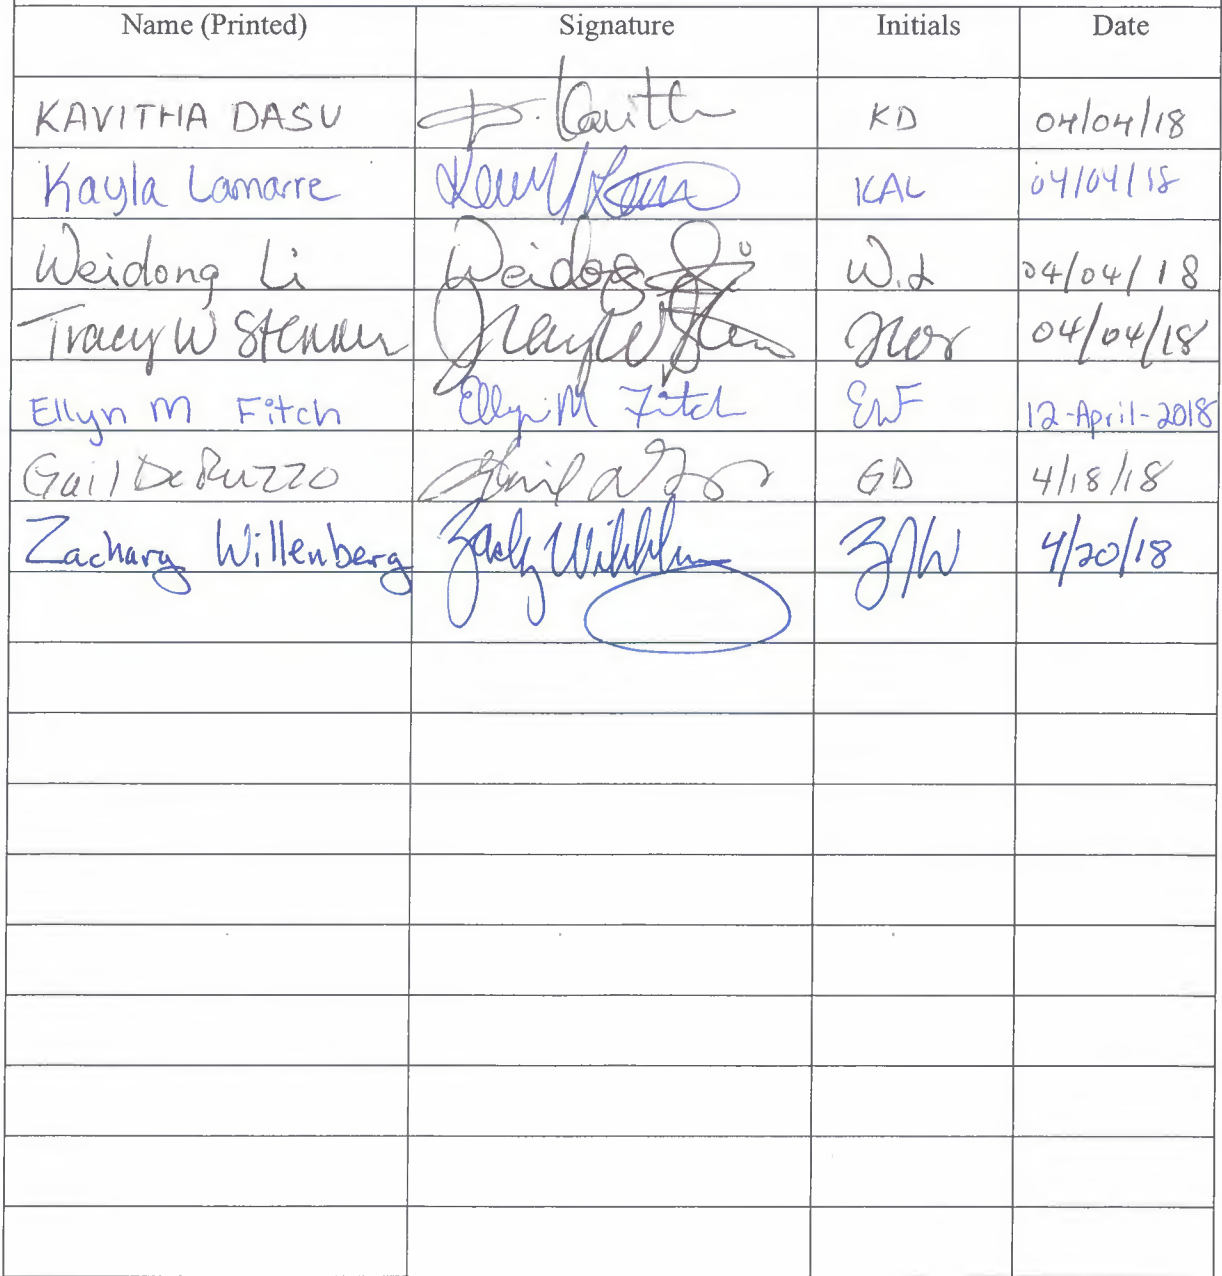 Name (Printed) Signature Initials Date
KAVITHA DASU D. Kavith KD 04/04/18
Kayla Lamarre KAL 04/04/18
Weidong Li Weidong Li W.L 04/04/18
Tracy W Stenner Tracy W 04/04/18
Ellyn M Fitch Ellyn M Fitch EMF 12-April-2018
Gail DeRuzzo Gail GD 4/18/18
Zachary Willenberg ZJW 4/20/18